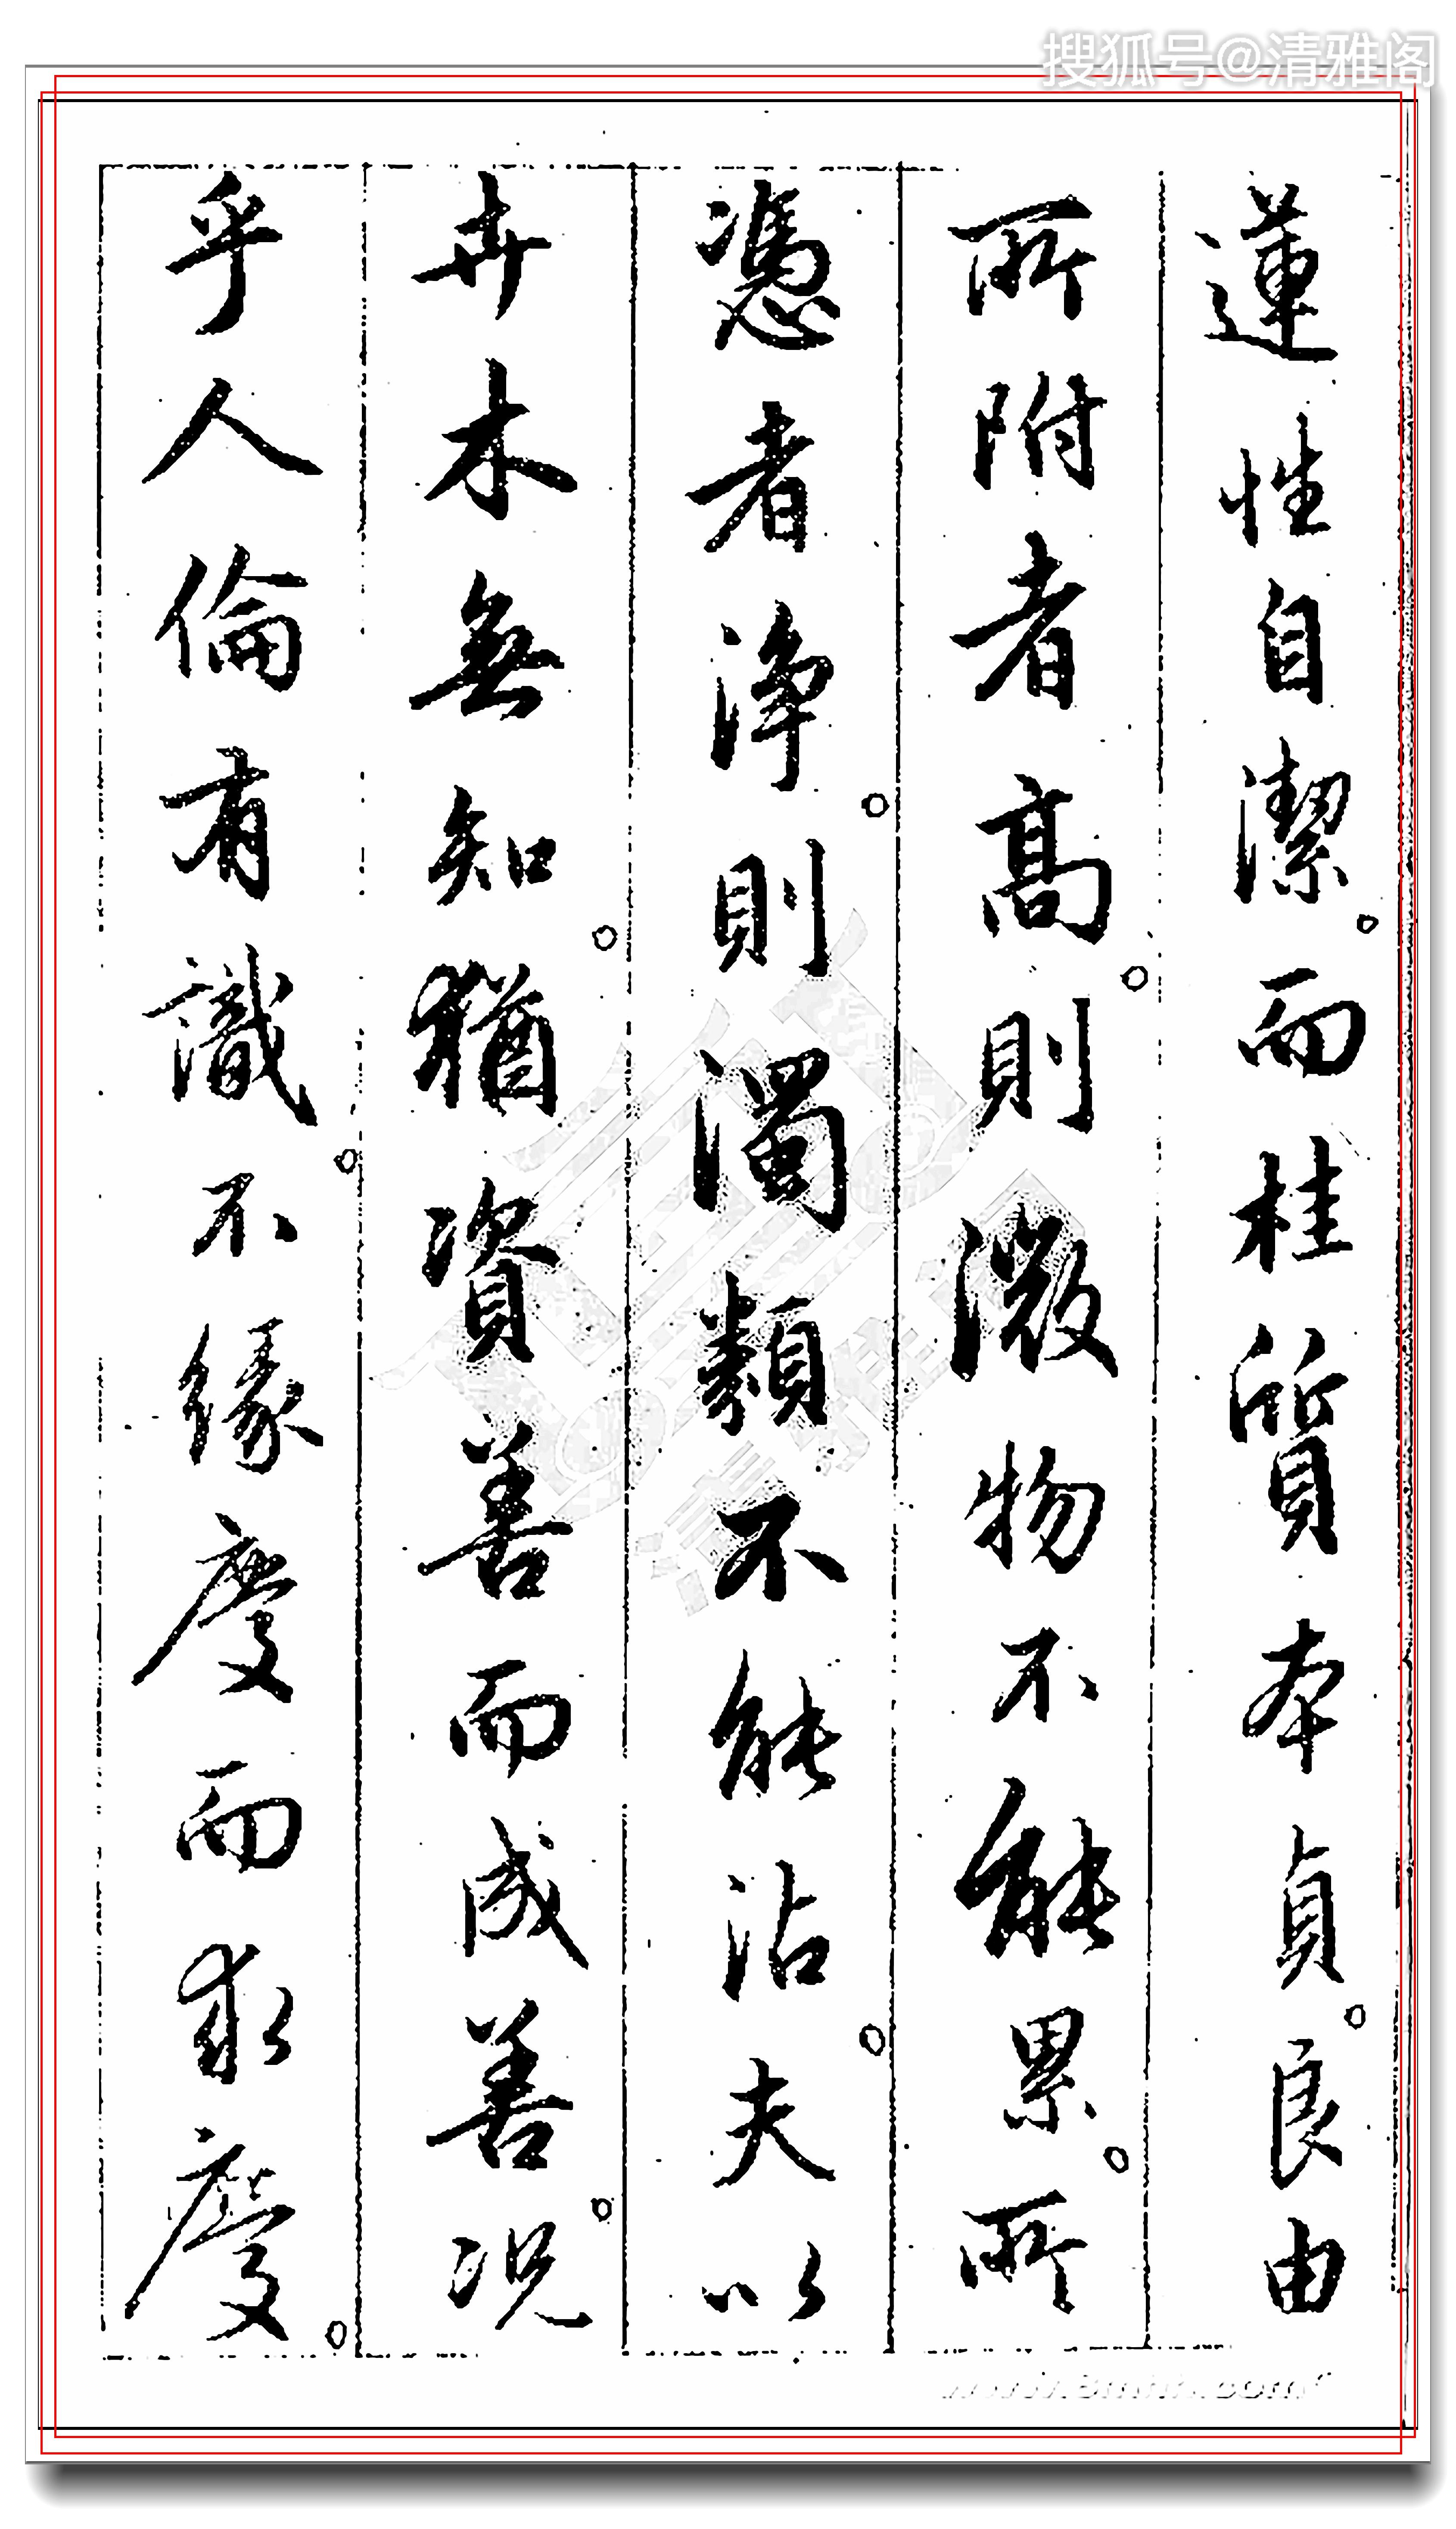 搜狐号@清雅阁
蓮性自潔而桂質本貞良由
所附者高則微物不能累所
憑者淨則濁類不能沾夫以
卉木無知猶資善而成善況
乎人倫有識不緣慶而求慶
清雅阁